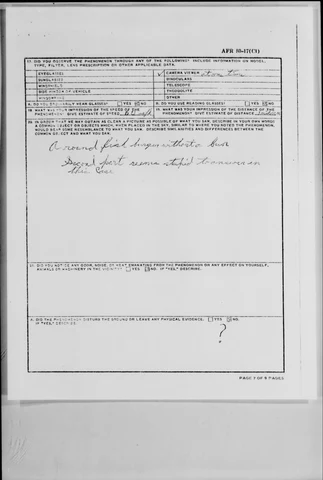 AFR 80-17(C1)
13. DID YOU OBSERVE THE PHENOMENON THROUGH ANY OF THE FOLLOWING? INCLUDE INFORMATION ON MODEL, TYPE, FILTER, LENS PRESCRIPTION OR OTHER APPLICABLE DATA.
EYEGLASSES CAMERA VIEWER
SUNGLASSES BINOCULARS
WINDSHIELD TELESCOPE
SIDE WINDOW OF VEHICLE THEODOLITE
WINDOWPANE OTHER
A. DO YOU ORDINARILY WEAR GLASSES? YES NO B. DO YOU USE READING GLASSES? YES NO
WHAT WAS YOUR IMPRESSION OF THE SPEED OF THE PHENOMENON? GIVE ESTIMATE OF SPEED WHAT WAS YOUR IMPRESSION OF THE DISTANCE OF THE PHENOMENON? GIVE ESTIMATE OF DISTANCE
IN ORDER THAT WE MAY OBTAIN AS CLEAR A PICTURE AS POSSIBLE OF WHAT YOU SAW, DESCRIBE IN YOUR OWN WORDS A COMMON OBJECT OR OBJECTS WHICH, WHEN PLACED IN THE SKY, SIMILAR TO WHERE YOU NOTED THE PHENOMENON, WOULD BEAR SOME RESEMBLANCE TO WHAT YOU SAW. DESCRIBE SIMILARITIES AND DIFFERENCES BETWEEN THE COMMON OBJECT AND WHAT YOU SAW.
A round fried burger without a bun
Second part seems stupid to answer in
this case
DID YOU NOTICE ANY ODOR, NOISE, OR HEAT EMANATING FROM THE PHENOMENON OR ANY EFFECT ON YOURSELF, ANIMALS OR MACHINERY IN THE VICINITY? YES NO. IF "YES," DESCRIBE.
DID THE PHENOMENON DISTURB THE GROUND OR LEAVE ANY PHYSICAL EVIDENCE? YES NO.
IF "YES," DESCRIBE.
?
PAGE 7 OF 9 PAGES